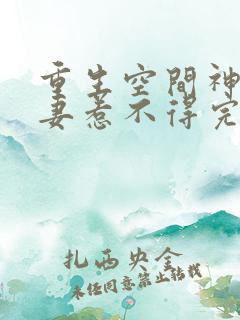 重生空間神
妻惹不得完
扎西央金
未经同意禁止转载